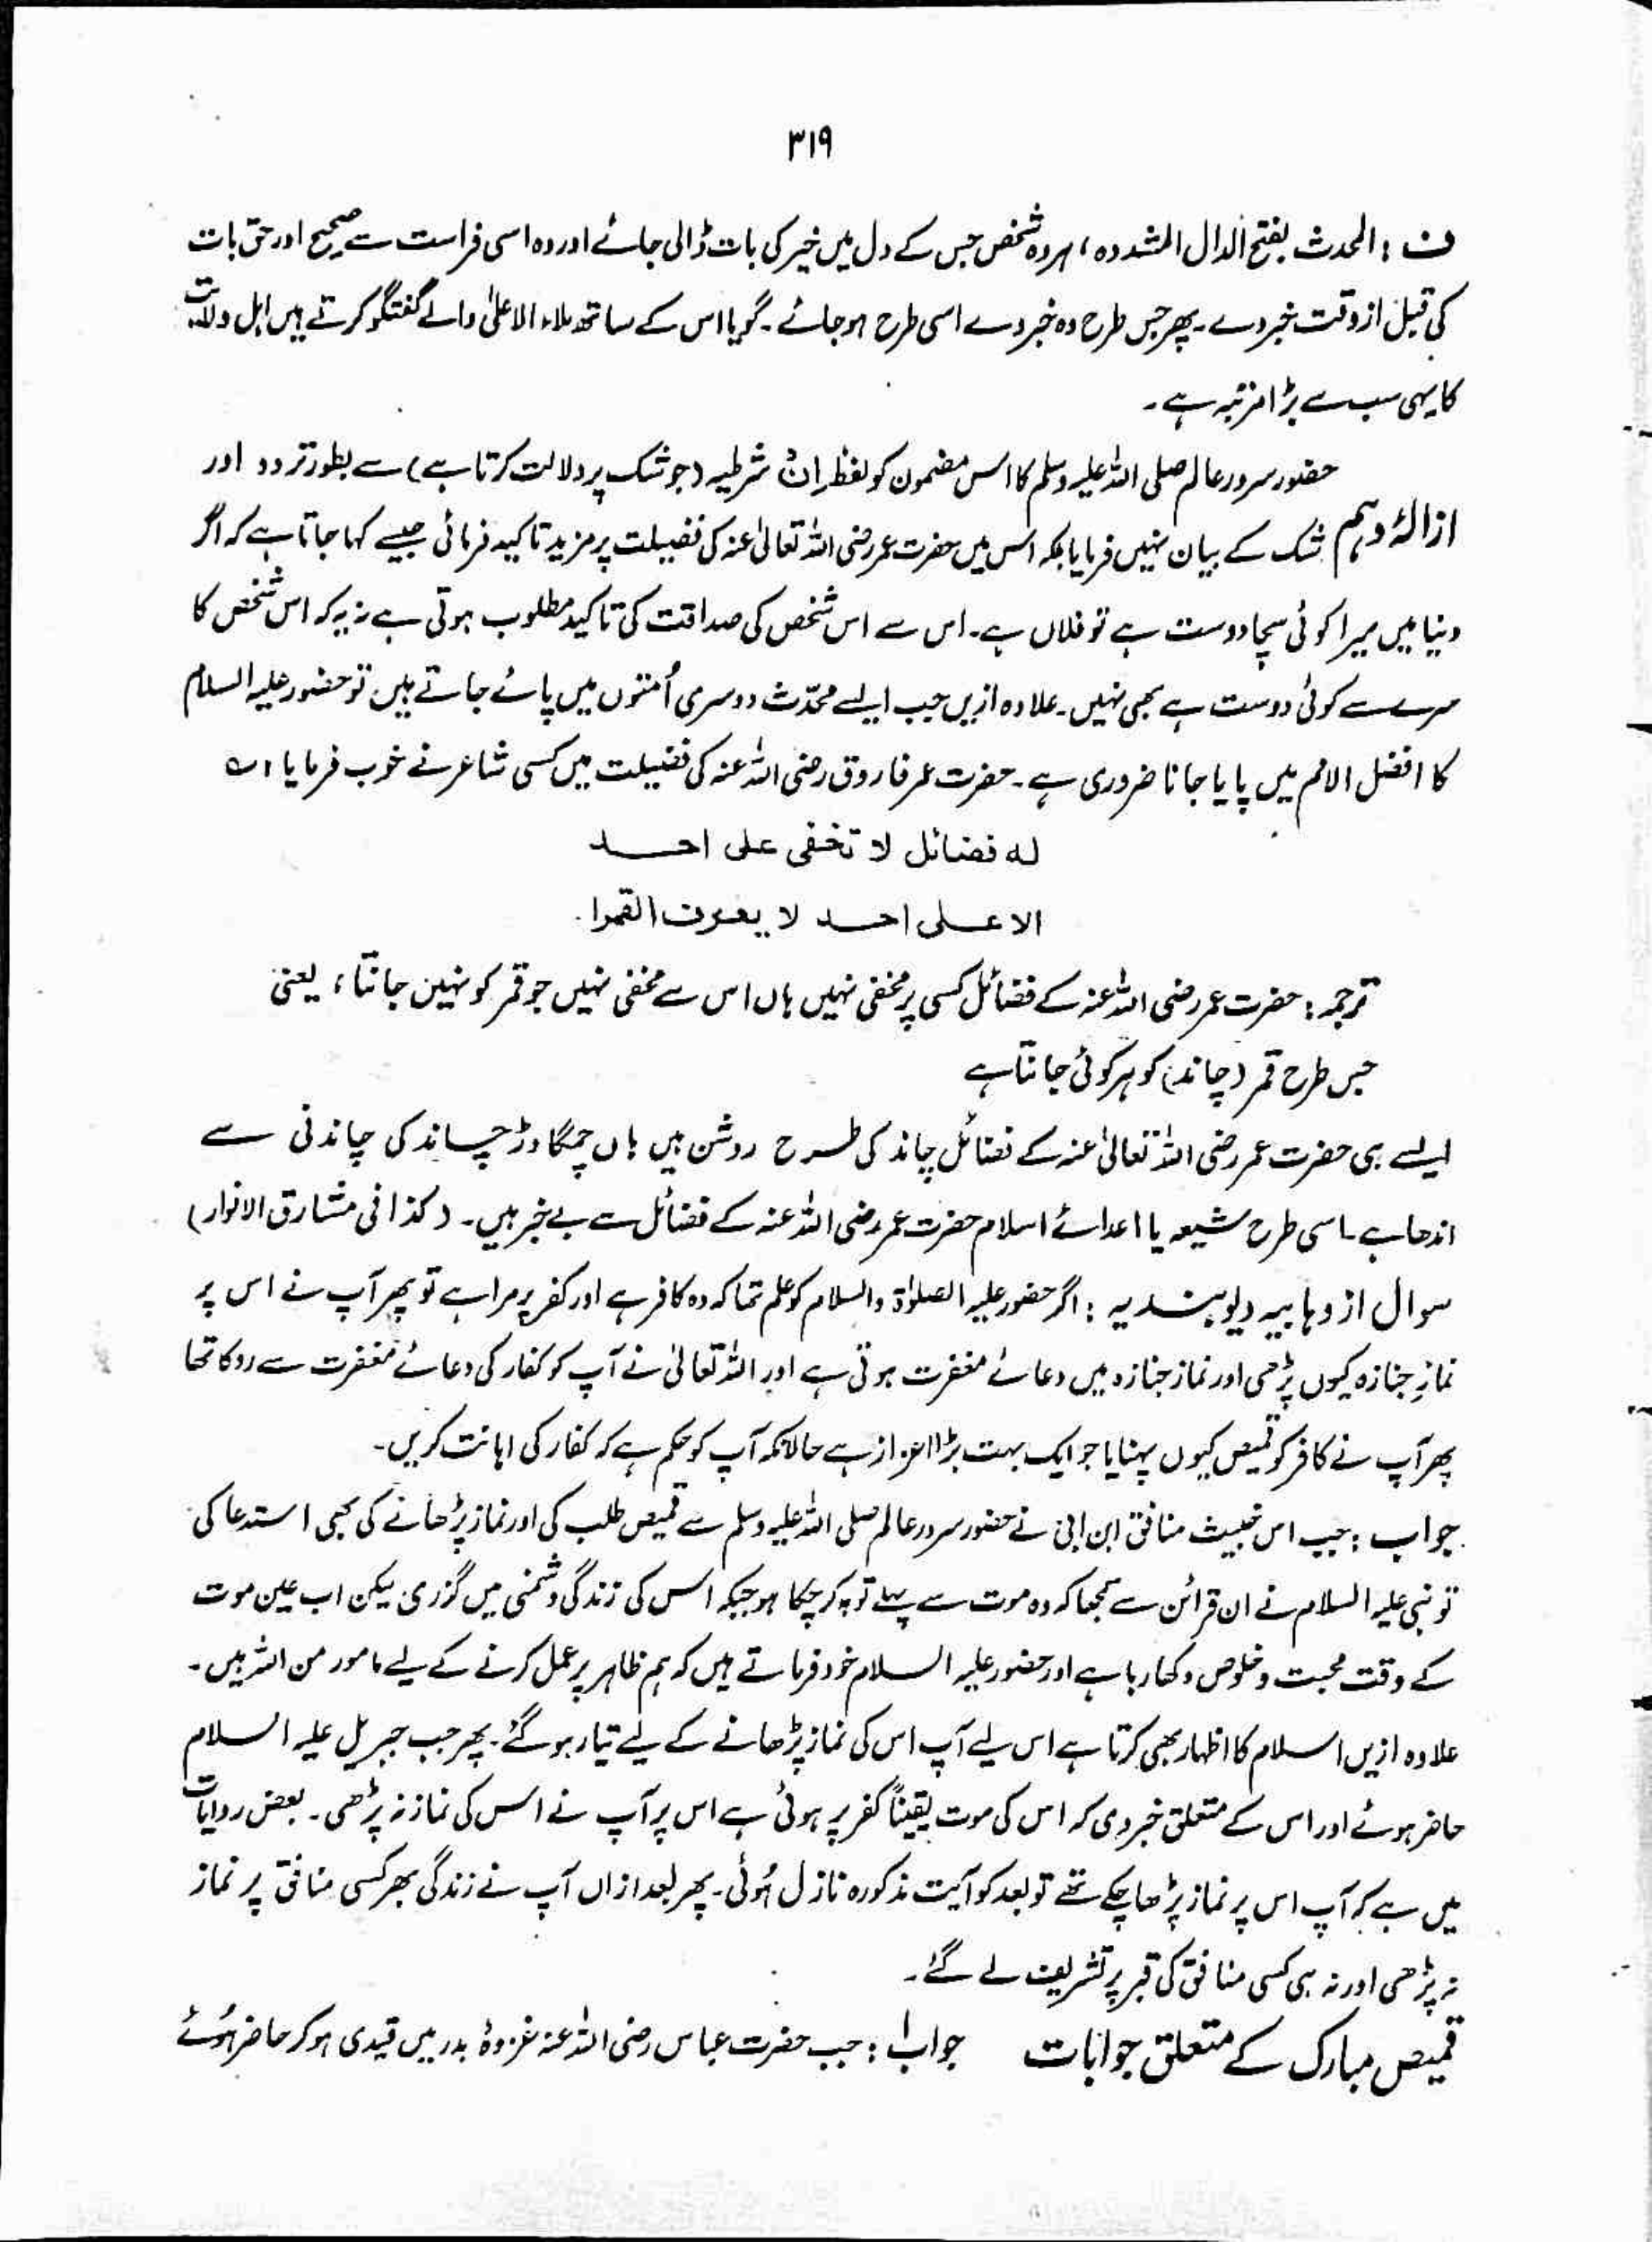 ۳۱۹
ف : المحدث بفتح الدال المشددہ ، ہر وہ شخص جس کے دل میں خیر کی بات ڈالی جائے اور وہ اسی فراست سے صحیح اور حق بات
کی قبل از وقت خبر دے ۔ پھر جس طرح وہ خبر دے اسی طرح ہوجائے ۔ گویا اس کے ساتھ ملاء الاعلیٰ والے گفتگو کرتے ہیں اہل ولایت
کا یہی سب سے بڑا مرتبہ ہے ۔
حضور سرور عالم صلی اللہ علیہ وسلم کا اس مضمون کو لفظ اِنْ شرطیہ (جو شک پر دلالت کرتا ہے) سے بطور تردد اور
ازالۂ وہم شک کے بیان نہیں فرمایا بلکہ اس میں حضرت عمر رضی اللہ تعالیٰ عنہ کی فضیلت پر مزید تاکید فرمائی جیسے کہا جاتا ہے کہ اگر
دنیا میں میرا کوئی سچا دوست ہے تو فلاں ہے ۔ اس سے اس شخص کی صداقت کی تاکید مطلوب ہوتی ہے نہ یہ کہ اس شخص کا
سرے سے کوئی دوست ہے بھی نہیں ۔ علاوہ ازیں جب ایسے محدّث دوسری اُمتوں میں پائے جاتے ہیں تو حضور علیہ السلام
کا افضل الامم میں پایا جانا ضروری ہے ۔ حضرت عمر فاروق رضی اللہ عنہ کی فضیلت میں کسی شاعر نے خوب فرمایا : ؎
لہ فضائل لا تخفی علی احد
الا علی احد لا یعرف القمرا
ترجمہ : حضرت عمر رضی اللہ عنہ کے فضائل کسی پر مخفی نہیں ہاں اس سے مخفی نہیں جو قمر کو نہیں جانتا ، یعنی
جس طرح قمر (چاند) کو ہر کوئی جانتا ہے
ایسے ہی حضرت عمر رضی اللہ تعالیٰ عنہ کے فضائل چاند کی طرح روشن ہیں ہاں چمگادڑ چاند کی چاندنی سے
اندھا ہے ۔ اسی طرح شیعہ یا اعدائے اسلام حضرت عمر رضی اللہ عنہ کے فضائل سے بے خبر ہیں ۔ (کذا فی مشارق الانوار)
سوال از وہابیہ دیوبندیہ : اگر حضور علیہ الصلوٰۃ والسلام کو علم تھا کہ وہ کافر ہے اور کفر پر مرا ہے تو پھر آپ نے اس پر
نمازِ جنازہ کیوں پڑھی اور نماز جنازہ میں دعائے مغفرت ہوتی ہے اور اللہ تعالیٰ نے آپ کو کفار کی دعائے مغفرت سے روکا تھا
پھر آپ نے کافر کو قمیص کیوں پہنایا جو ایک بہت بڑا اعزاز ہے حالانکہ آپ کو حکم ہے کہ کفار کی اہانت کریں ۔
جواب : جب اس خبیث منافق ابن ابی نے حضور سرور عالم صلی اللہ علیہ وسلم سے قمیص طلب کی اور نماز پڑھانے کی بھی استدعا کی
تو نبی علیہ السلام نے ان قرائن سے سمجھا کہ وہ موت سے پہلے توبہ کرچکا ہو جبکہ اس کی زندگی دشمنی میں گزری لیکن اب عین موت
کے وقت محبت و خلوص دکھا رہا ہے اور حضور علیہ السلام خود فرماتے ہیں کہ ہم ظاہر پر عمل کرنے کے لیے مامور من اللہ ہیں ۔
علاوہ ازیں اسلام کا اظہار بھی کرتا ہے اس لیے آپ اس کی نماز پڑھانے کے لیے تیار ہوگئے ۔ پھر جب جبریل علیہ السلام
حاضر ہوئے اور اس کے متعلق خبر دی کہ اس کی موت یقیناً کفر پر ہوئی ہے اس پر آپ نے اس کی نماز نہ پڑھی ۔ بعض روایات
میں ہے کہ آپ اس پر نماز پڑھا چکے تھے تو بعد کو آیت مذکورہ نازل ہُوئی ۔ پھر بعد ازاں آپ نے زندگی بھر کسی منافق پر نماز
نہ پڑھی اور نہ ہی کسی منافق کی قبر پر تشریف لے گئے ۔
قمیص مبارک کے متعلق جوابات جواب۱ : جب حضرت عباس رضی اللہ عنہ غزوۂ بدر میں قیدی ہوکر حاضر ہُوئے